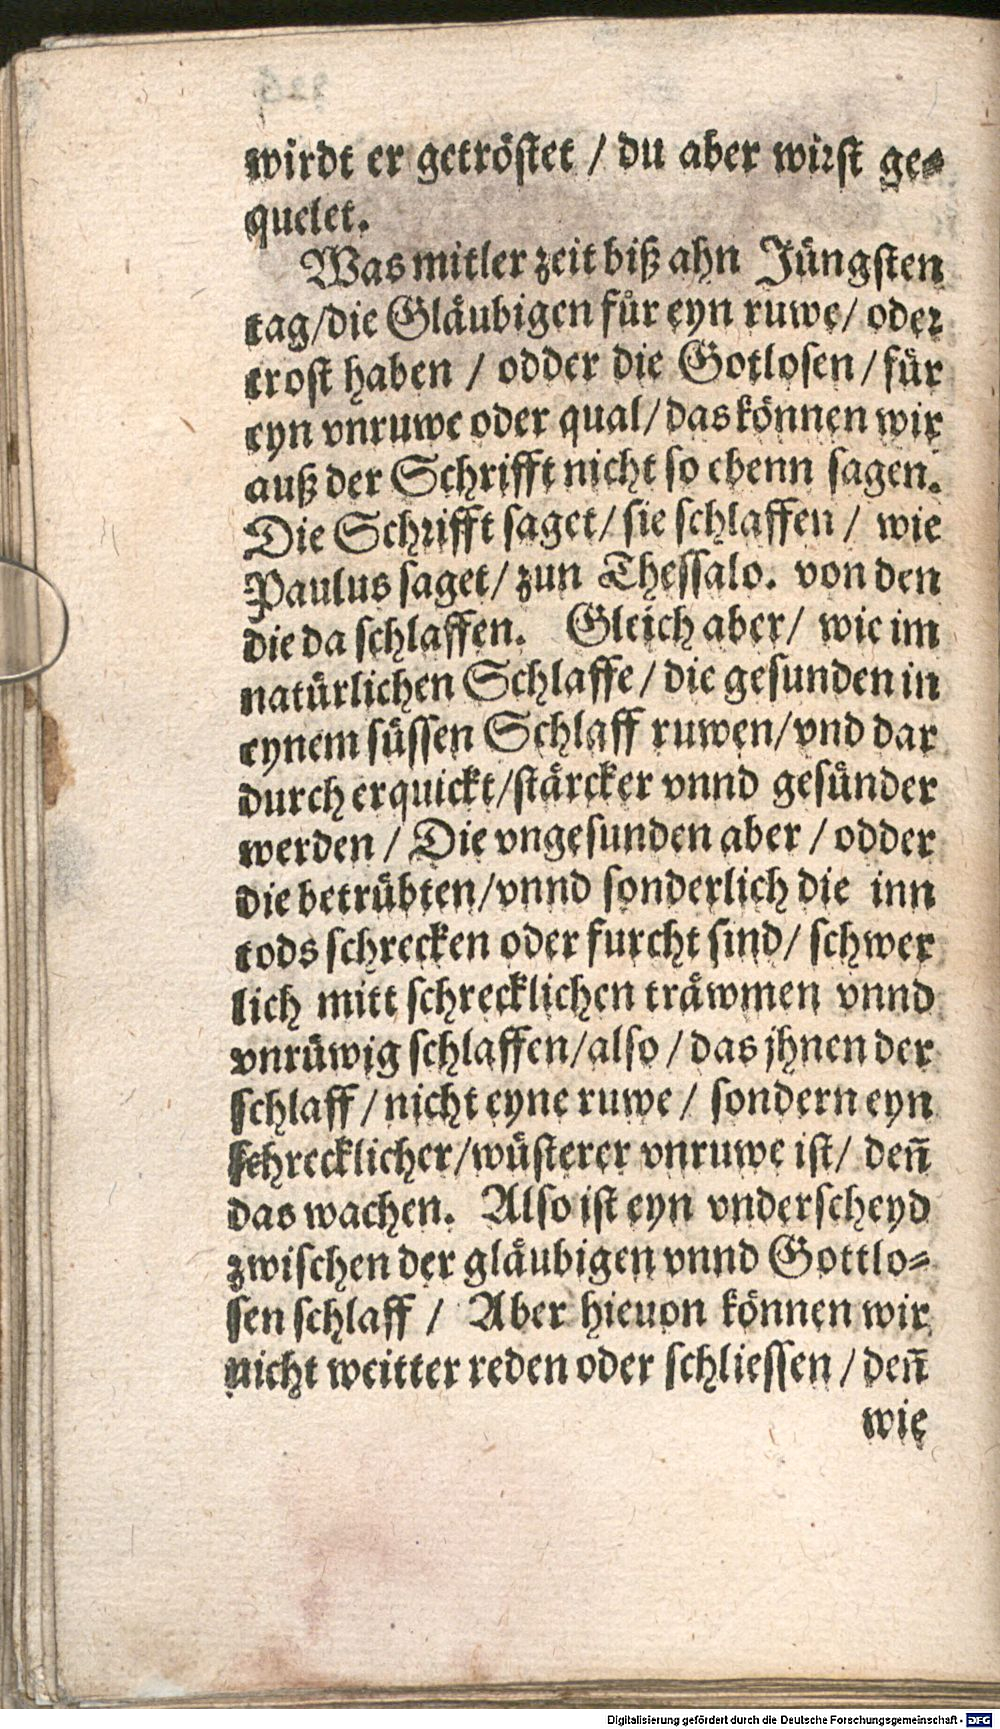 wirdt er getröstet / du aber wirst ge-
quelet.
Was mitler zeit biß ahn Jüngsten
tag/die Gläubigen für eyn ruwe/ oder
trost haben / odder die Gotlosen/für
eyn vnruwe oder qual/das können wir
auß der Schrifft nicht so ebenn sagen.
Die Schrifft saget/ sie schlaffen / wie
Paulus saget/ zun Thessalo. von den
die da schlaffen. Gleich aber/ wie im
natürlichen Schlaffe/die gesunden in
eynem süssen Schlaff ruwen/vnd dar
durch erquickt/stärcker vnnd gesünder
werden / Die vngesunden aber / odder
die betrübten/vnnd sonderlich die inn
tods schrecken oder furcht sind/ schwer
lich mitt schrecklichen träwmen vnnd
vnrüwig schlaffen/also / das jhnen der
schlaff/nicht eyne ruwe/ sondern eyn
schrecklicher/wüsterer vnruwe ist/ deñ
das wachen. Also ist eyn vnderscheyd
zwischen der gläubigen vnnd Gottlo-
sen schlaff / Aber hieuon können wir
nicht weitter reden oder schliessen / deñ
wie
Digitalisierung gefördert durch die Deutsche Forschungsgemeinschaft - DFG